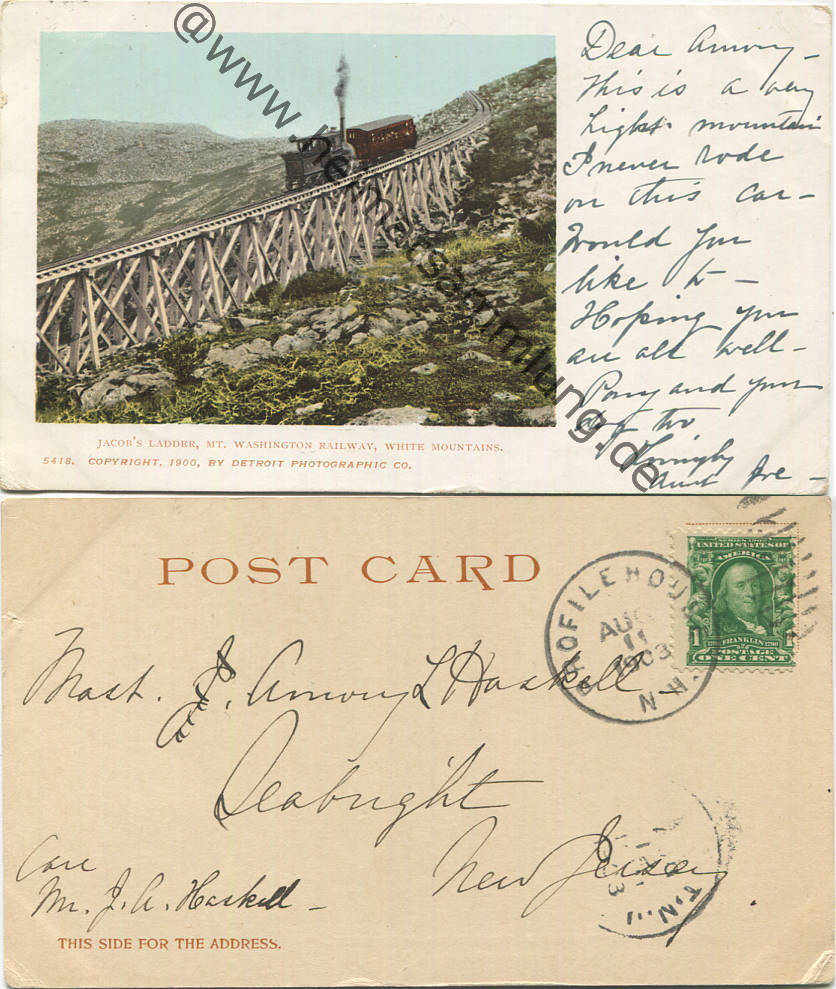 Dear Amory -
This is a very
hight mountain
I never rode
on this car -
Would you
like to -
Hoping you
are all well -
Pony and your
dog two
Aunt
JACOB'S LADDER, MT. WASHINGTON RAILWAY, WHITE MOUNTAINS.
5418. COPYRIGHT, 1900, BY DETROIT PHOTOGRAPHIC CO.
@www.heimatsammlung.de
POST CARD
PROFILE HOUSE N.H.
AUG
11
1903
SERIES 1902
UNITED STATES OF
AMERICA
FRANKLIN
POSTAGE
1 ONE CENT
Mast. J. Amory L Haskell -
Seabright
New Jersey
Care
Mr. J. A. Haskell -
N.J.
THIS SIDE FOR THE ADDRESS.